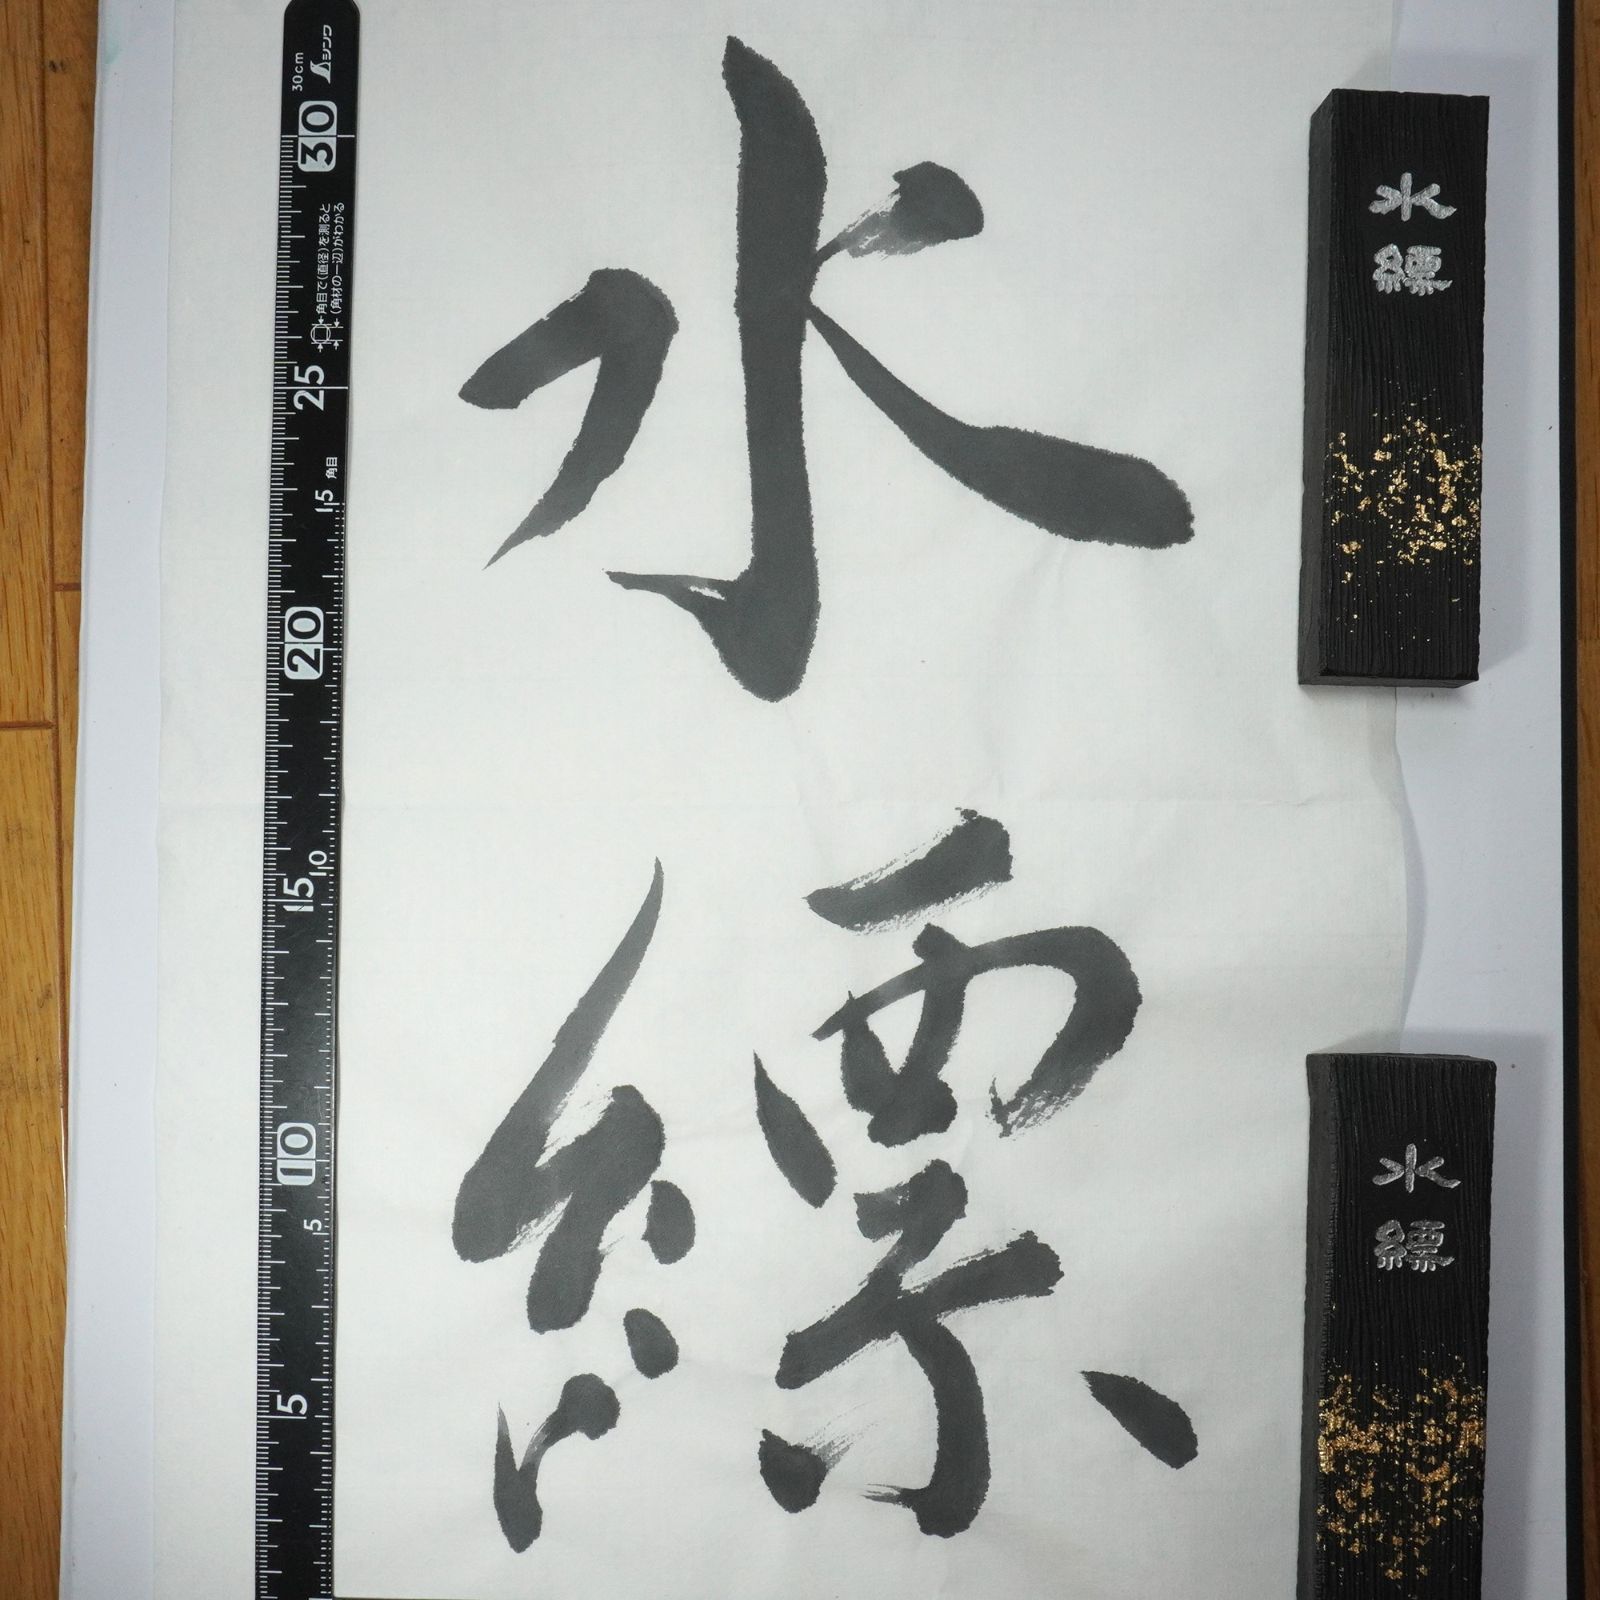 水縹
水縹
水縹
シンワ
30cm
30
角目で(直径)を測ると
(角材の一辺)がわかる
25
角目
15
20
15
10
10
5
5